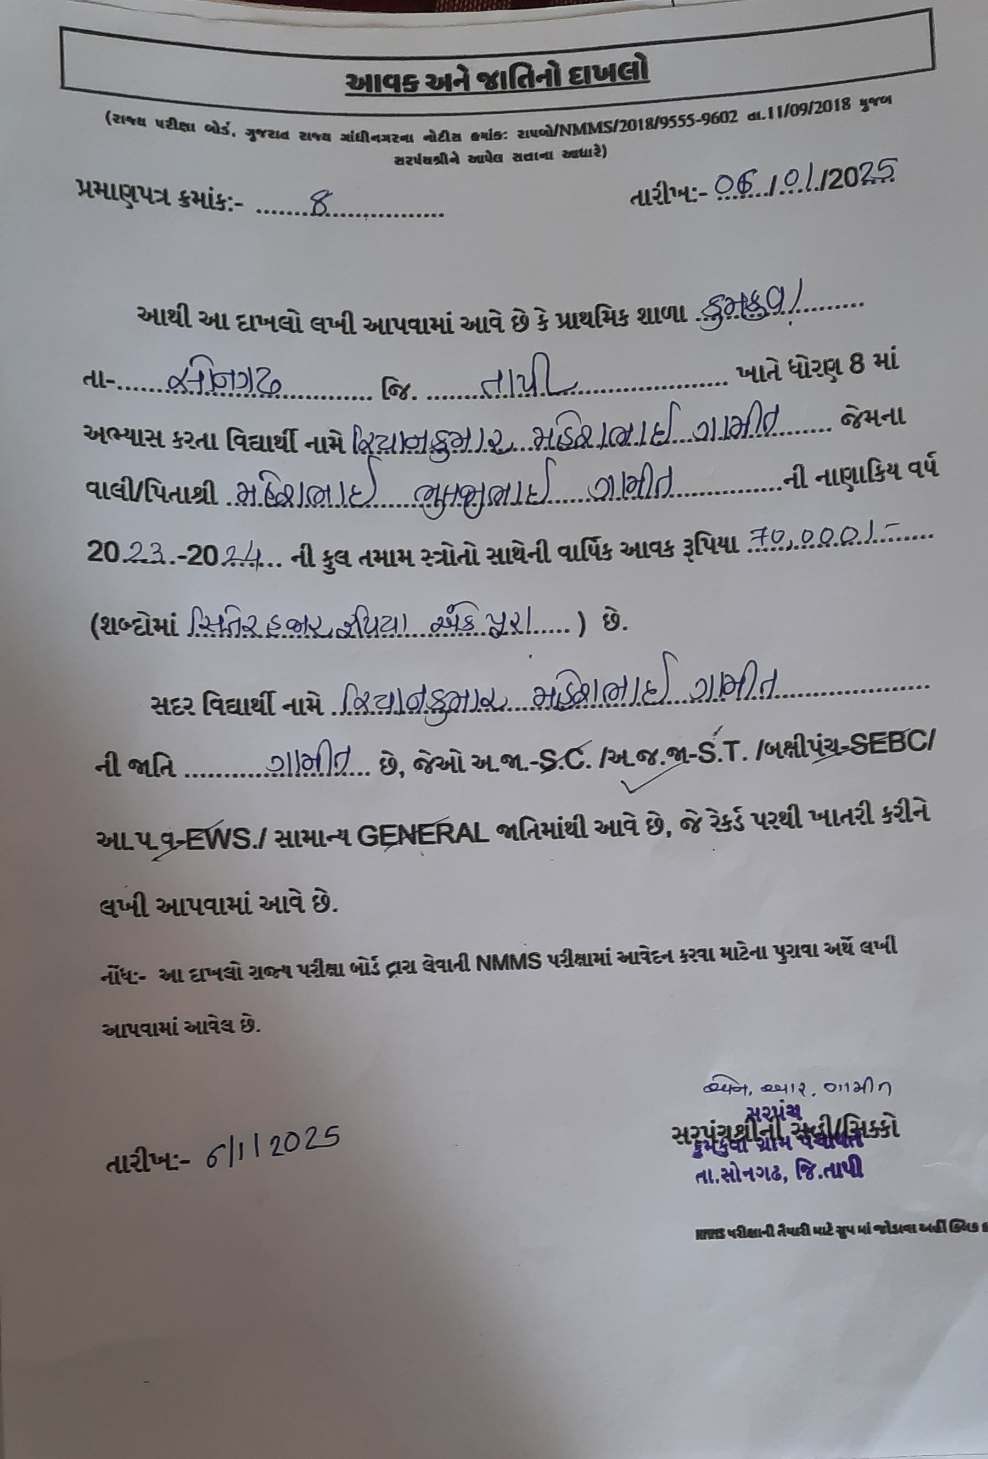 આવક અને જાતિનો દાખલો
(રાજ્ય પરીક્ષા બોર્ડ, ગુજરાત રાજ્ય ગાંધીનગરના નોટીસ ક્રમાંક: રાપબો/NMMS/2018/9555-9602 તા.11/09/2018 મુજબ
સરપંચશ્રીને આપેલ સત્તાના આધારે)
પ્રમાણપત્ર ક્રમાંક:- 8
તારીખ:- 06/01/2025
આથી આ દાખલો લખી આપવામાં આવે છે કે પ્રાથમિક શાળા કુમકુવા
તા- સોનગઢ જિ. તાપી ખાતે ધોરણ 8 માં
અભ્યાસ કરતા વિદ્યાર્થી નામે રિયાનકુમાર મહેશભાઈ ગામીત જેમના
વાલી/પિતાશ્રી મહેશભાઈ ગામીત ની નાણાકિય વર્ષ
2023-2024 ની કુલ તમામ સ્ત્રોતો સાથેની વાર્ષિક આવક રૂપિયા 70,000/-
(શબ્દોમાં સિતેર હજાર રૂપિયા અંકે પૂરા) છે.
સદર વિદ્યાર્થી નામે રિયાનકુમાર મહેશભાઈ ગામીત
ની જાતિ ગામીત છે, જેઓ અ.જા.-S.C. /અ.જ.જા-S.T. /બક્ષીપંચ-SEBC/
આ.પ.વ-EWS./ સામાન્ય GENERAL જાતિમાંથી આવે છે, જે રેકર્ડ પરથી ખાતરી કરીને
લખી આપવામાં આવે છે.
નોંધ:- આ દાખલો રાજ્ય પરીક્ષા બોર્ડ દ્વારા લેવાની NMMS પરીક્ષામાં આવેદન કરવા માટેના પુરાવા અર્થે લખી
આપવામાં આવેલ છે.
એન. આર. ગામીત
સરપંચ
સરપંચશ્રીની સહી/સિક્કો
કુમકુવા ગ્રામ પંચાયત
તા.સોનગઢ, જિ.તાપી
તારીખ:- 6/1/2025
NMMS પરીક્ષાની તૈયારી માટે ગ્રુપ માં જોડાવા અહીં ક્લિક